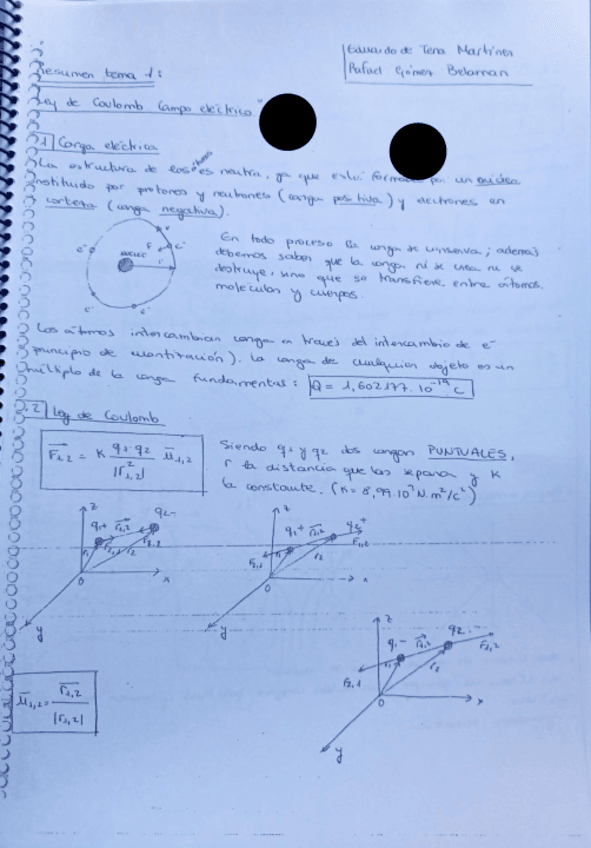 Eduardo de Tena Martínez
Rafael Gómez
Resumen tema 1:
Ley de Coulomb Campo eléctrico.
1 Carga eléctrica
La estructura de los átomos es neutra, ya que está por un
nstituido por protones y neutrones (carga positiva) y electrones en
corteza (carga negativa).
En todo proceso la carga se conserva; además
debemos saber que la carga ni se crea ni se
destruye, sino que se transfiere entre átomos,
moléculas y cuerpos.
NÚCLEO
e⁻
e⁻
e⁻
e⁻
F
r
v
Los átomos intercambian carga a través del intercambio de e⁻
principio de cuantización). La carga de cualquier objeto es un
múltiplo de la carga fundamental: Q = 1,602177·10⁻¹⁹ C
1.2 Ley de Coulomb
F₁,₂ = K q₁·q₂ / |r₁,₂|² u₁,₂
Siendo q₁ y q₂ dos cargas PUNTUALES,
r la distancia que las separa y K
la constante. (K = 8,99·10⁹ N·m²/C²)
z
q₁+ r₁,₂ q₂-
F₂,₁
r₁ r₂
0 x
y
z
q₁+ r₁,₂ q₂+
F₂,₁ F₁,₂
r₂
0 x
y
z
q₁- r₁,₂ q₂-
F₂,₁ F₁,₂
r₁ r₂
0 x
y
u₁,₂ = r₁,₂ / |r₁,₂|